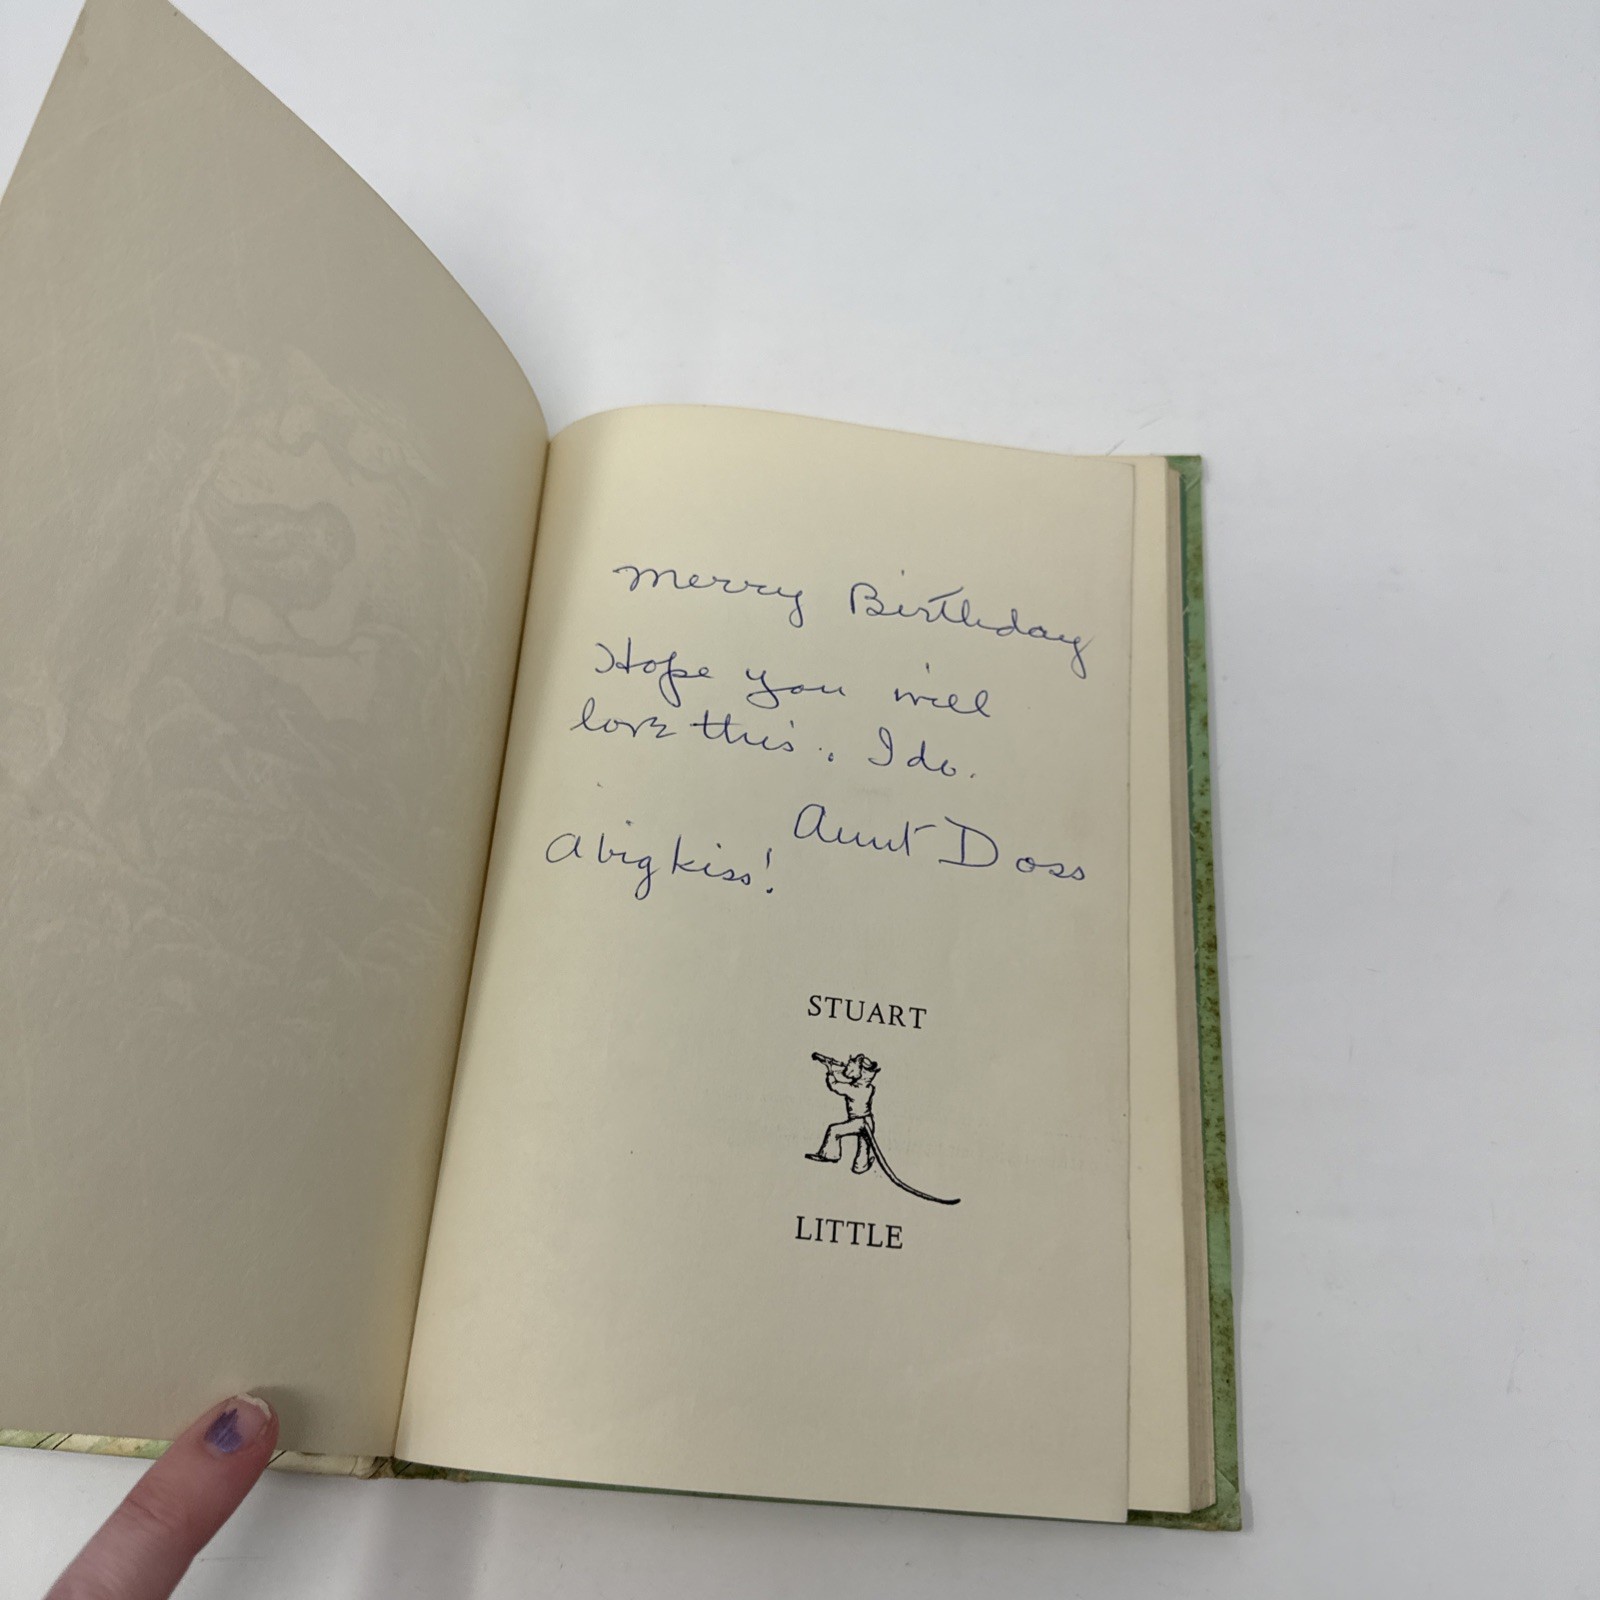 Merry Birthday
Hope you will
love this. I do.
Aunt Doss
A big kiss!
STUART
LITTLE